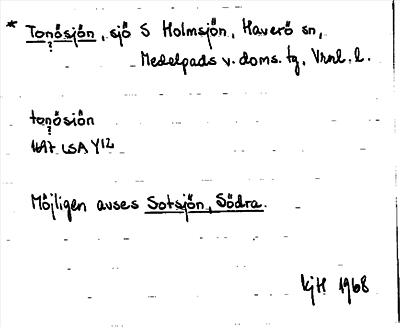 * Tonösjön, sjö S Holmsjön, Haverö sn,
?
Medelpads v. doms. tg, Vrnl. l.
tonösiön
?
1697 LSA Y12
Möjligen avses Sotsjön, Södra.
KjH 1968